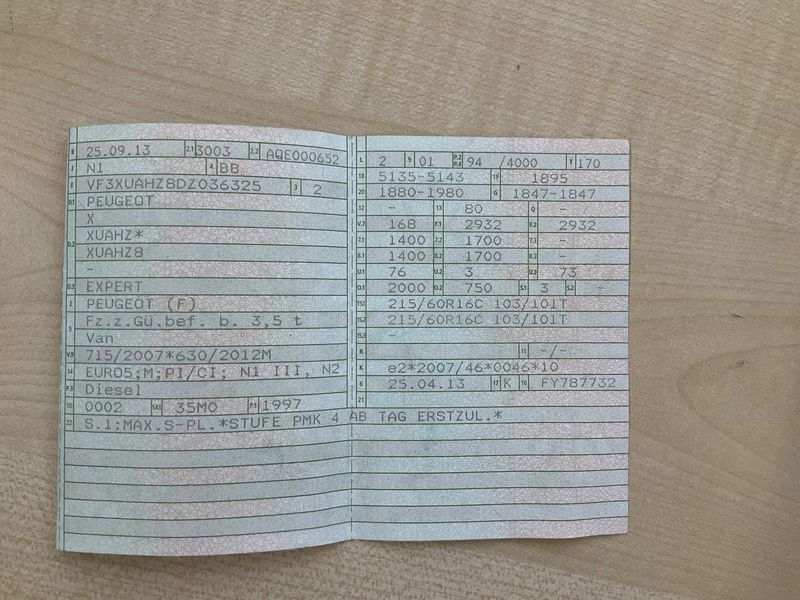 B 25.09.13 2.1 3003 2.2 AQE000652
J N1 4 BB
E VF3XUAHZ8DZ036325 3 2
D.1 PEUGEOT
X
D.2 XUAHZ*
XUAHZ8
-
D.3 EXPERT
2 PEUGEOT (F)
5 Fz.z.Gü.bef. b. 3,5 t
Van
V.9 715/2007*630/2012M
14 EURO5;M;PI/CI; N1 III, N2
P.3 Diesel
10 0002 14.1 35M0 P.1 1997
22 S.1:MAX.S-PL.*STUFE PMK 4 AB TAG ERSTZUL.*
L 2 9 01 P.2 P.4 94 /4000 T 170
18 5135-5143 19 1895
20 1880-1980 G 1847-1847
12 - 13 80 Q -
V.7 168 F.1 2932 F.2 2932
7.1 1400 7.2 1700 7.3 -
8.1 1400 8.2 1700 8.3 -
U.1 76 U.2 3 U.3 73
O.1 2000 O.2 750 S.1 3 S.2 -
15.1 215/60R16C 103/101T
15.2 215/60R16C 103/101T
15.3 -
R 11 -/-
K e2*2007/46*0046*10
6 25.04.13 17 K 16 FY787732
21